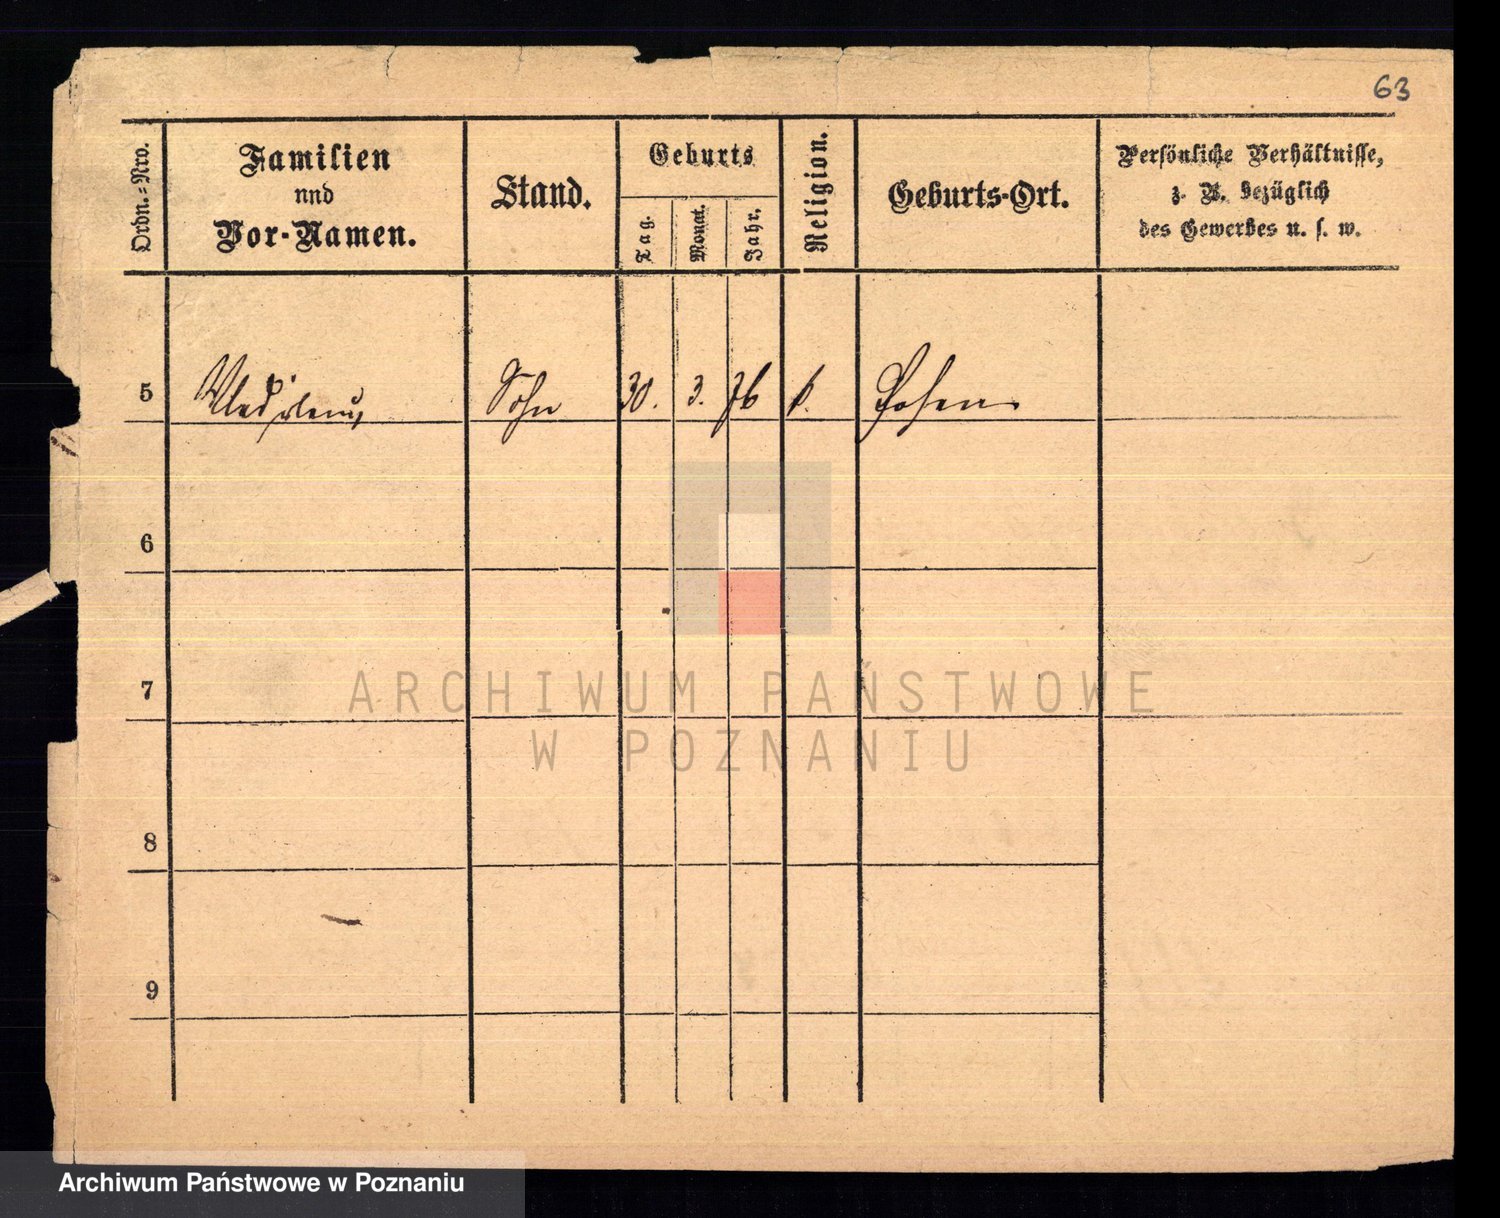 63
Ordn.-Nro.
Familien
und
Vor-Namen.
Stand.
Geburts
Tag.
Monat.
Jahr.
Religion.
Geburts-Ort.
Persönliche Verhältnisse,
z. B. bezüglich
des Gewerbes u. s. w.
5 Sohn 30. 3. 76 k. Posen
6
7
8
9
ARCHIWUM PAŃSTWOWE
W POZNANIU
Archiwum Państwowe w Poznaniu